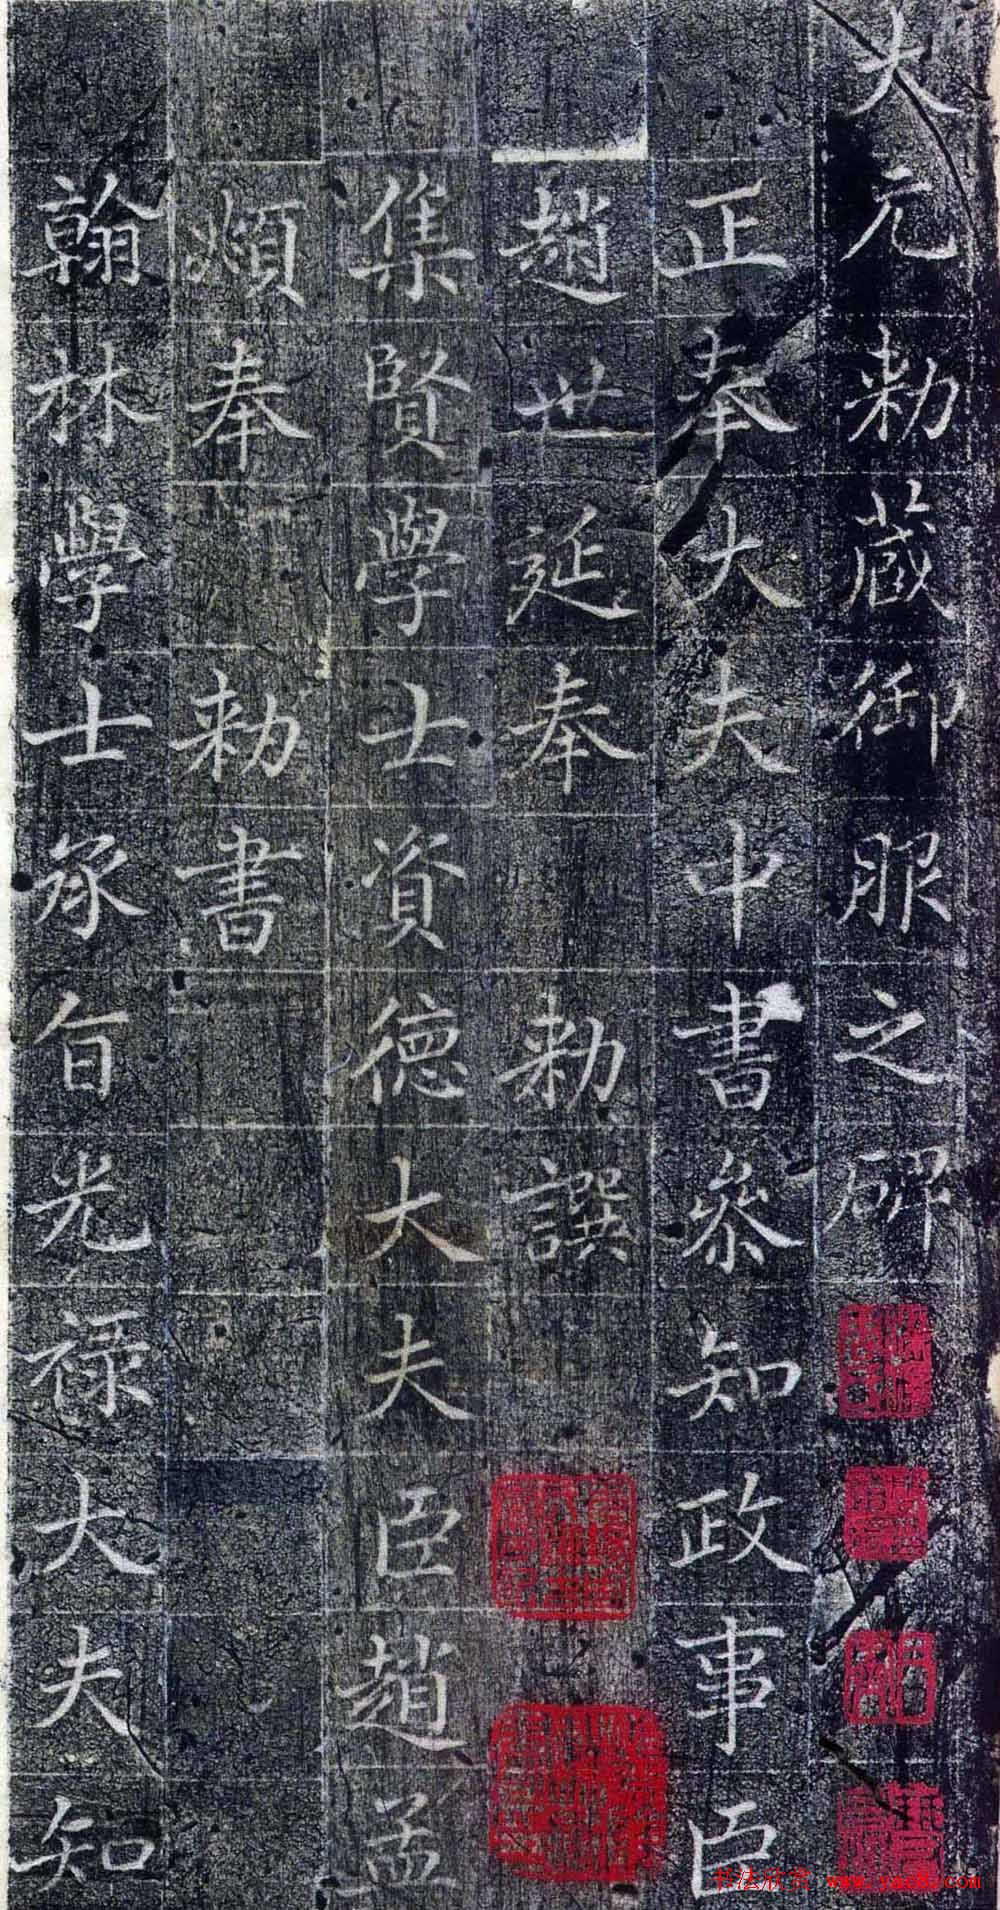 大元勑藏御服之碑
正奉大夫中書叅知政事臣
趙世延奉勑譔
集賢學士資德大夫臣趙孟
頫奉勑書
翰林學士承旨光禄大夫知
书法欣赏 www.yac8.com